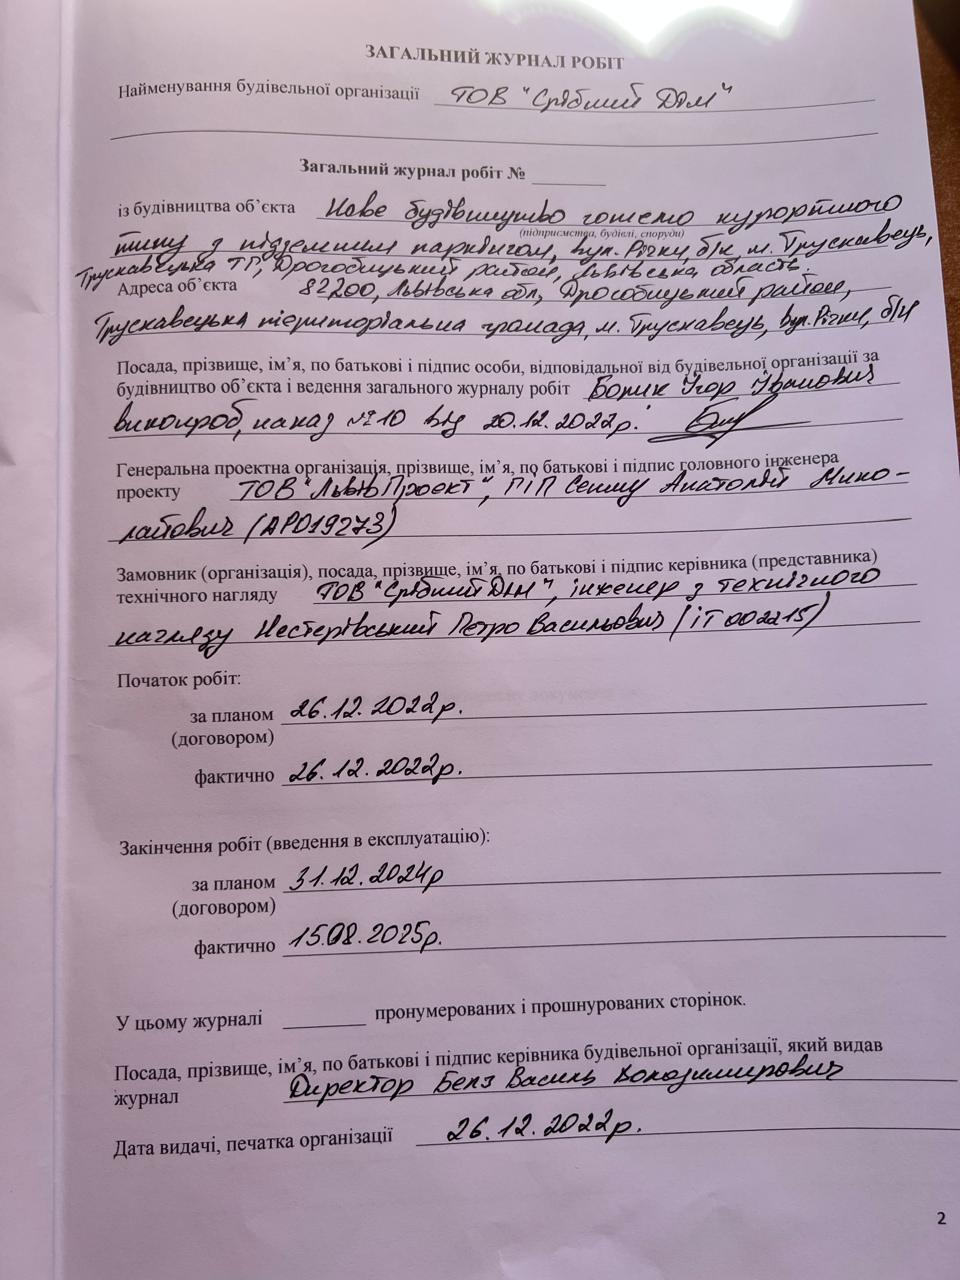 ЗАГАЛЬНИЙ ЖУРНАЛ РОБІТ
Найменування будівельної організації ТОВ "Срібний Дім"
Загальний журнал робіт №
із будівництва об’єкта Нове будівництво готелю курортного
(підприємства, будівлі, споруди)
типу з підземним паркінгом, вул. Річки, б/н, м. Трускавець,
Трускавецька ТГ, Дрогобицький район, Львівська область.
Адреса об’єкта 82200, Львівська обл, Дрогобицький район,
Трускавецька територіальна громада, м. Трускавець, вул. Річки, б/н
Посада, прізвище, ім’я, по батькові і підпис особи, відповідальної від будівельної організації за
будівництво об’єкта і ведення загального журналу робіт Ігор Іванович
виконроб, наказ №10 від 20.12.2022р.
Генеральна проектна організація, прізвище, ім’я, по батькові і підпис головного інженера
проекту ТОВ "ЛьвівПроект", ГІП Анатолій Мико-
лайович (АР019273)
Замовник (організація), посада, прізвище, ім’я, по батькові і підпис керівника (представника)
технічного нагляду ТОВ "Срібний Дім", інженер з технічного
нагляду Нестерівський Петро Васильович (ІТ 002215)
Початок робіт:
за планом 26.12.2022р.
(договором)
фактично 26.12.2022р.
Закінчення робіт (введення в експлуатацію):
за планом 31.12.2024р
(договором)
фактично 15.08.2025р.
У цьому журналі пронумерованих і прошнурованих сторінок.
Посада, прізвище, ім’я, по батькові і підпис керівника будівельної організації, який видав
журнал Директор Белз Василь Володимирович
Дата видачі, печатка організації 26.12.2022р.
2